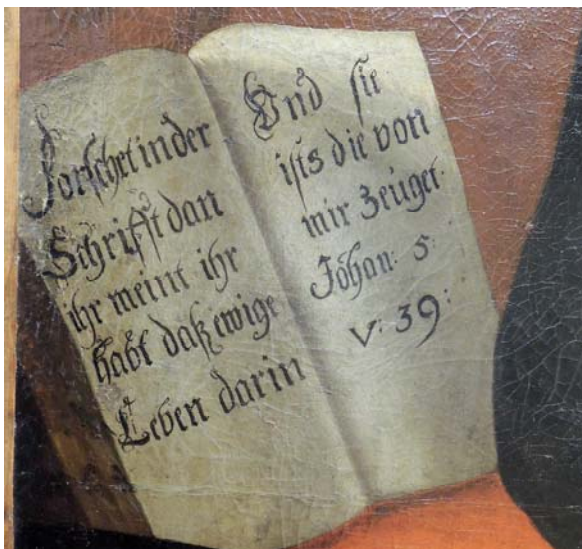 Forschet in der
Schrifft dan
ihr meint ihr
habt daß ewige
Leben darin
Und sie
ists die von
mir zeüget.
Johan: 5:
v: 39: